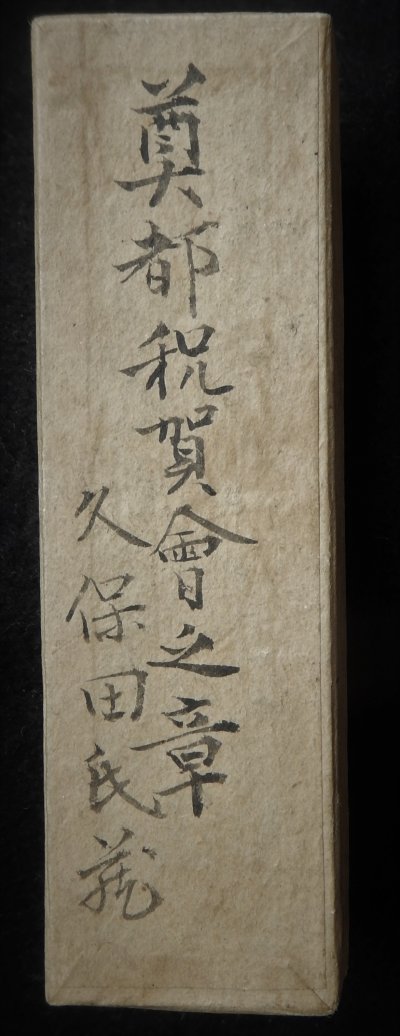 奠都祝賀會之章
久保田氏蔵